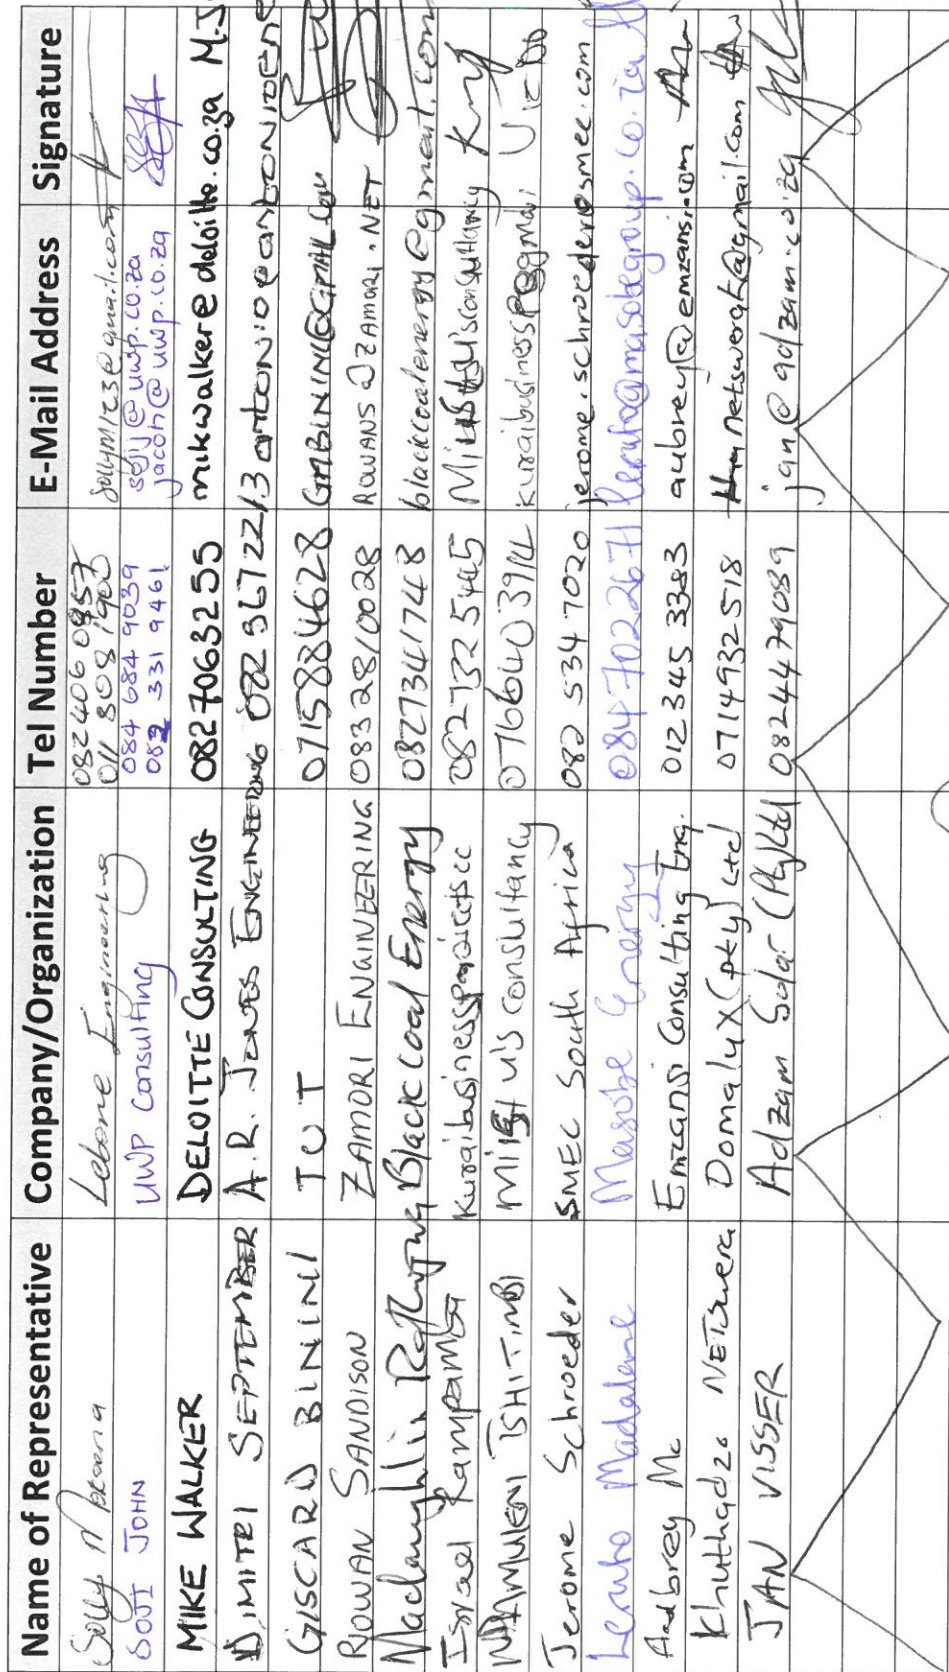 Name of Representative Company/Organization Tel Number E-Mail Address Signature
Solly Lebone Engineering 082 406 0957 011 808
SOJI JOHN UWP Consulting 084 684 9039 sojij@uwp.co.za
082 331 9461 jacoh@uwp.co.za
MIKE WALKER DELOITTE CONSULTING 0827063255 mikwalkere deloitte.co.za
DIMITRI SEPTEMBER A.R. JONES ENGINEERING antonio@antonioene
GISCARD BININI TUT 0715884628 GMBININI@GMAIL.COM
ROWAN SANDISON ZAMORI ENGINEERING 083 281 0028 ROWANS@ZAMORI.NET
Black Coal Energy 0827341748 blackcoalenergy@gment.com
Israel Kurai business 0827325445
TSHITIMBI Consultancy 0766403914
Jerome Schroeder SMEC South Africa 082 534 7020 jerome.schroeder@smec.com
Lerato Madalane Masobe Energy 0847022671 lerato@masobegroup.co.za
Aubrey Mc Emzansi Consulting Eng. 012 345 3383 aubrey@emzansi.com
Khuthadzo NETSWERA Domalux (pty) Ltd 0714932518 netswerak@gmail.com
JAN VISSER Adzam Solar (Pty)Ltd 0824479089 jan@adzam.co.za